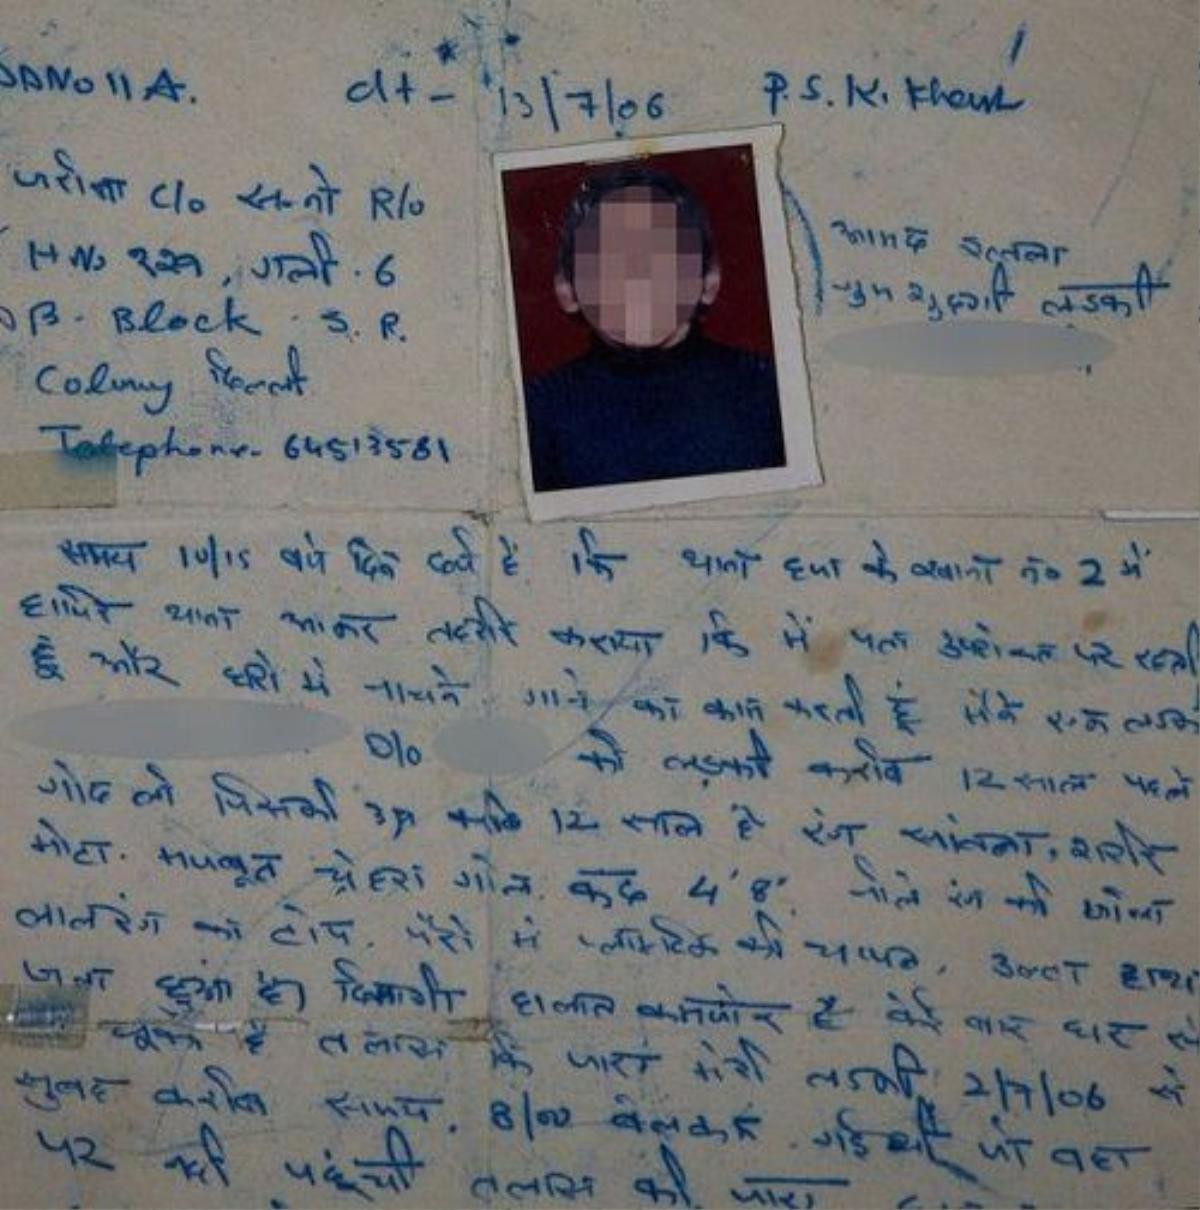 DDNO 11 A. dt- 13/7/06 P.S. K. Khas
C/o R/o
H No ३२१, गली. 6
B. Block. S. R.
Colony दिल्ली
Telephone. 64513581
आमद
गुमशुदगी लडकी
समय 10/15 बजे दिन दर्ज है कि थाना हजा के नं० 2 में
हाजिर थाना आकर तहरीर कराया कि में पता उपरोक्त पर रहती
हूँ और घरो में नाचने गाने का काम करती हूं मैंने एक लडकी
D/o की लड़की करीब 12 साल पहले
गोद ली जिसकी उम्र करीब 12 साल है रंग सांवला, शरीर
मोटा. मजबूत चेहरा गोल. कद 4' 8" पीले रंग की
लालरंग का टोप. पैरो में प्लास्टिक की चप्पल. उल्टा हाथ
जला हुआ है। दिमागी हालत कमजोर है कई बार घर से
चुकी है तलाश कि जावे मेरी लडकी 2/7/06 को
सुबह करीब समय. 8/00 गई थी जो वहा
पर नही पहुंची तलाश की जावे